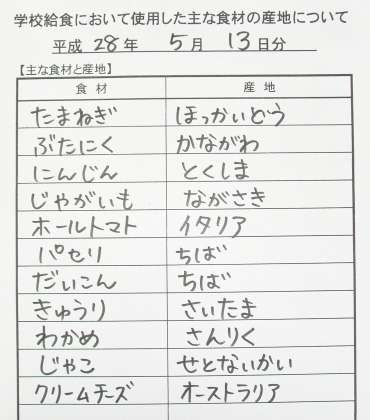 学校給食において使用した主な食材の産地について
平成 28 年 5 月 13 日分
【主な食材と産地】
食材 産地
たまねぎ ほっかいどう
ぶたにく かながわ
にんじん とくしま
じゃがいも ながさき
ホールトマト イタリア
パセリ ちば
だいこん ちば
きゅうり さいたま
わかめ さんりく
じゃこ せとないかい
クリームチーズ オーストラリア